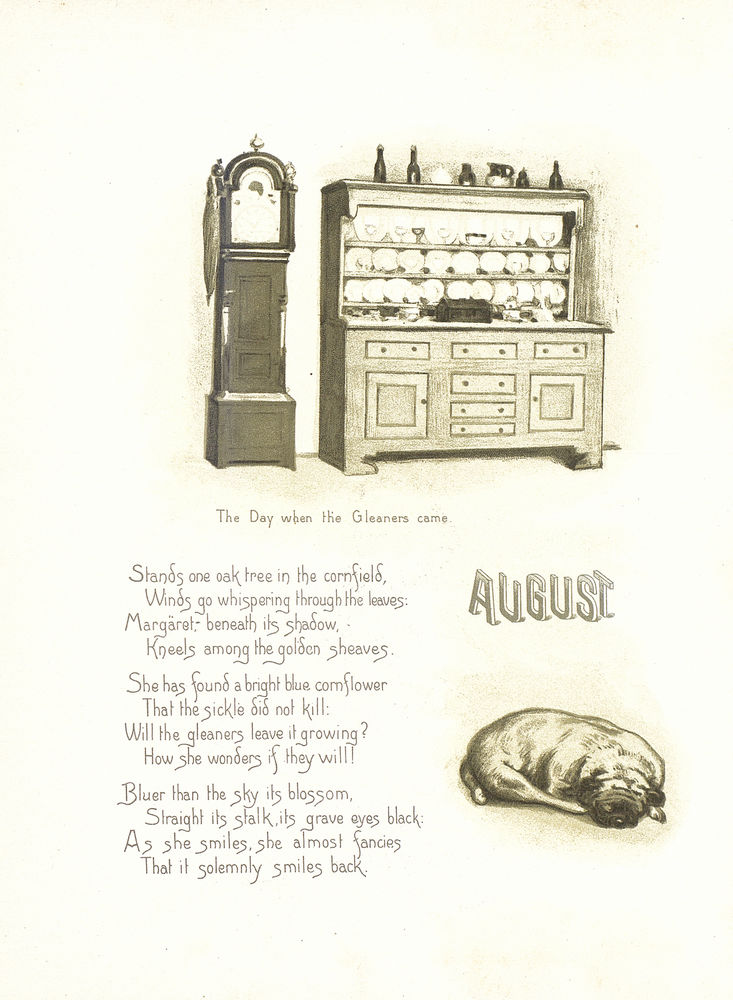 The Day when the Gleaners came.
Stands one oak tree in the cornfield,
Winds go whispering through the leaves:
Margäret, beneath its shadow,
Kneels among the golden sheaves.
She has found a bright blue cornflower
That the sickle did not kill:
Will the gleaners leave it growing?
How she wonders if they will!
Bluer than the sky its blossom,
Straight its stalk, its grave eyes black:
As she smiles, she almost fancies
That it solemnly smiles back.
AUGUST